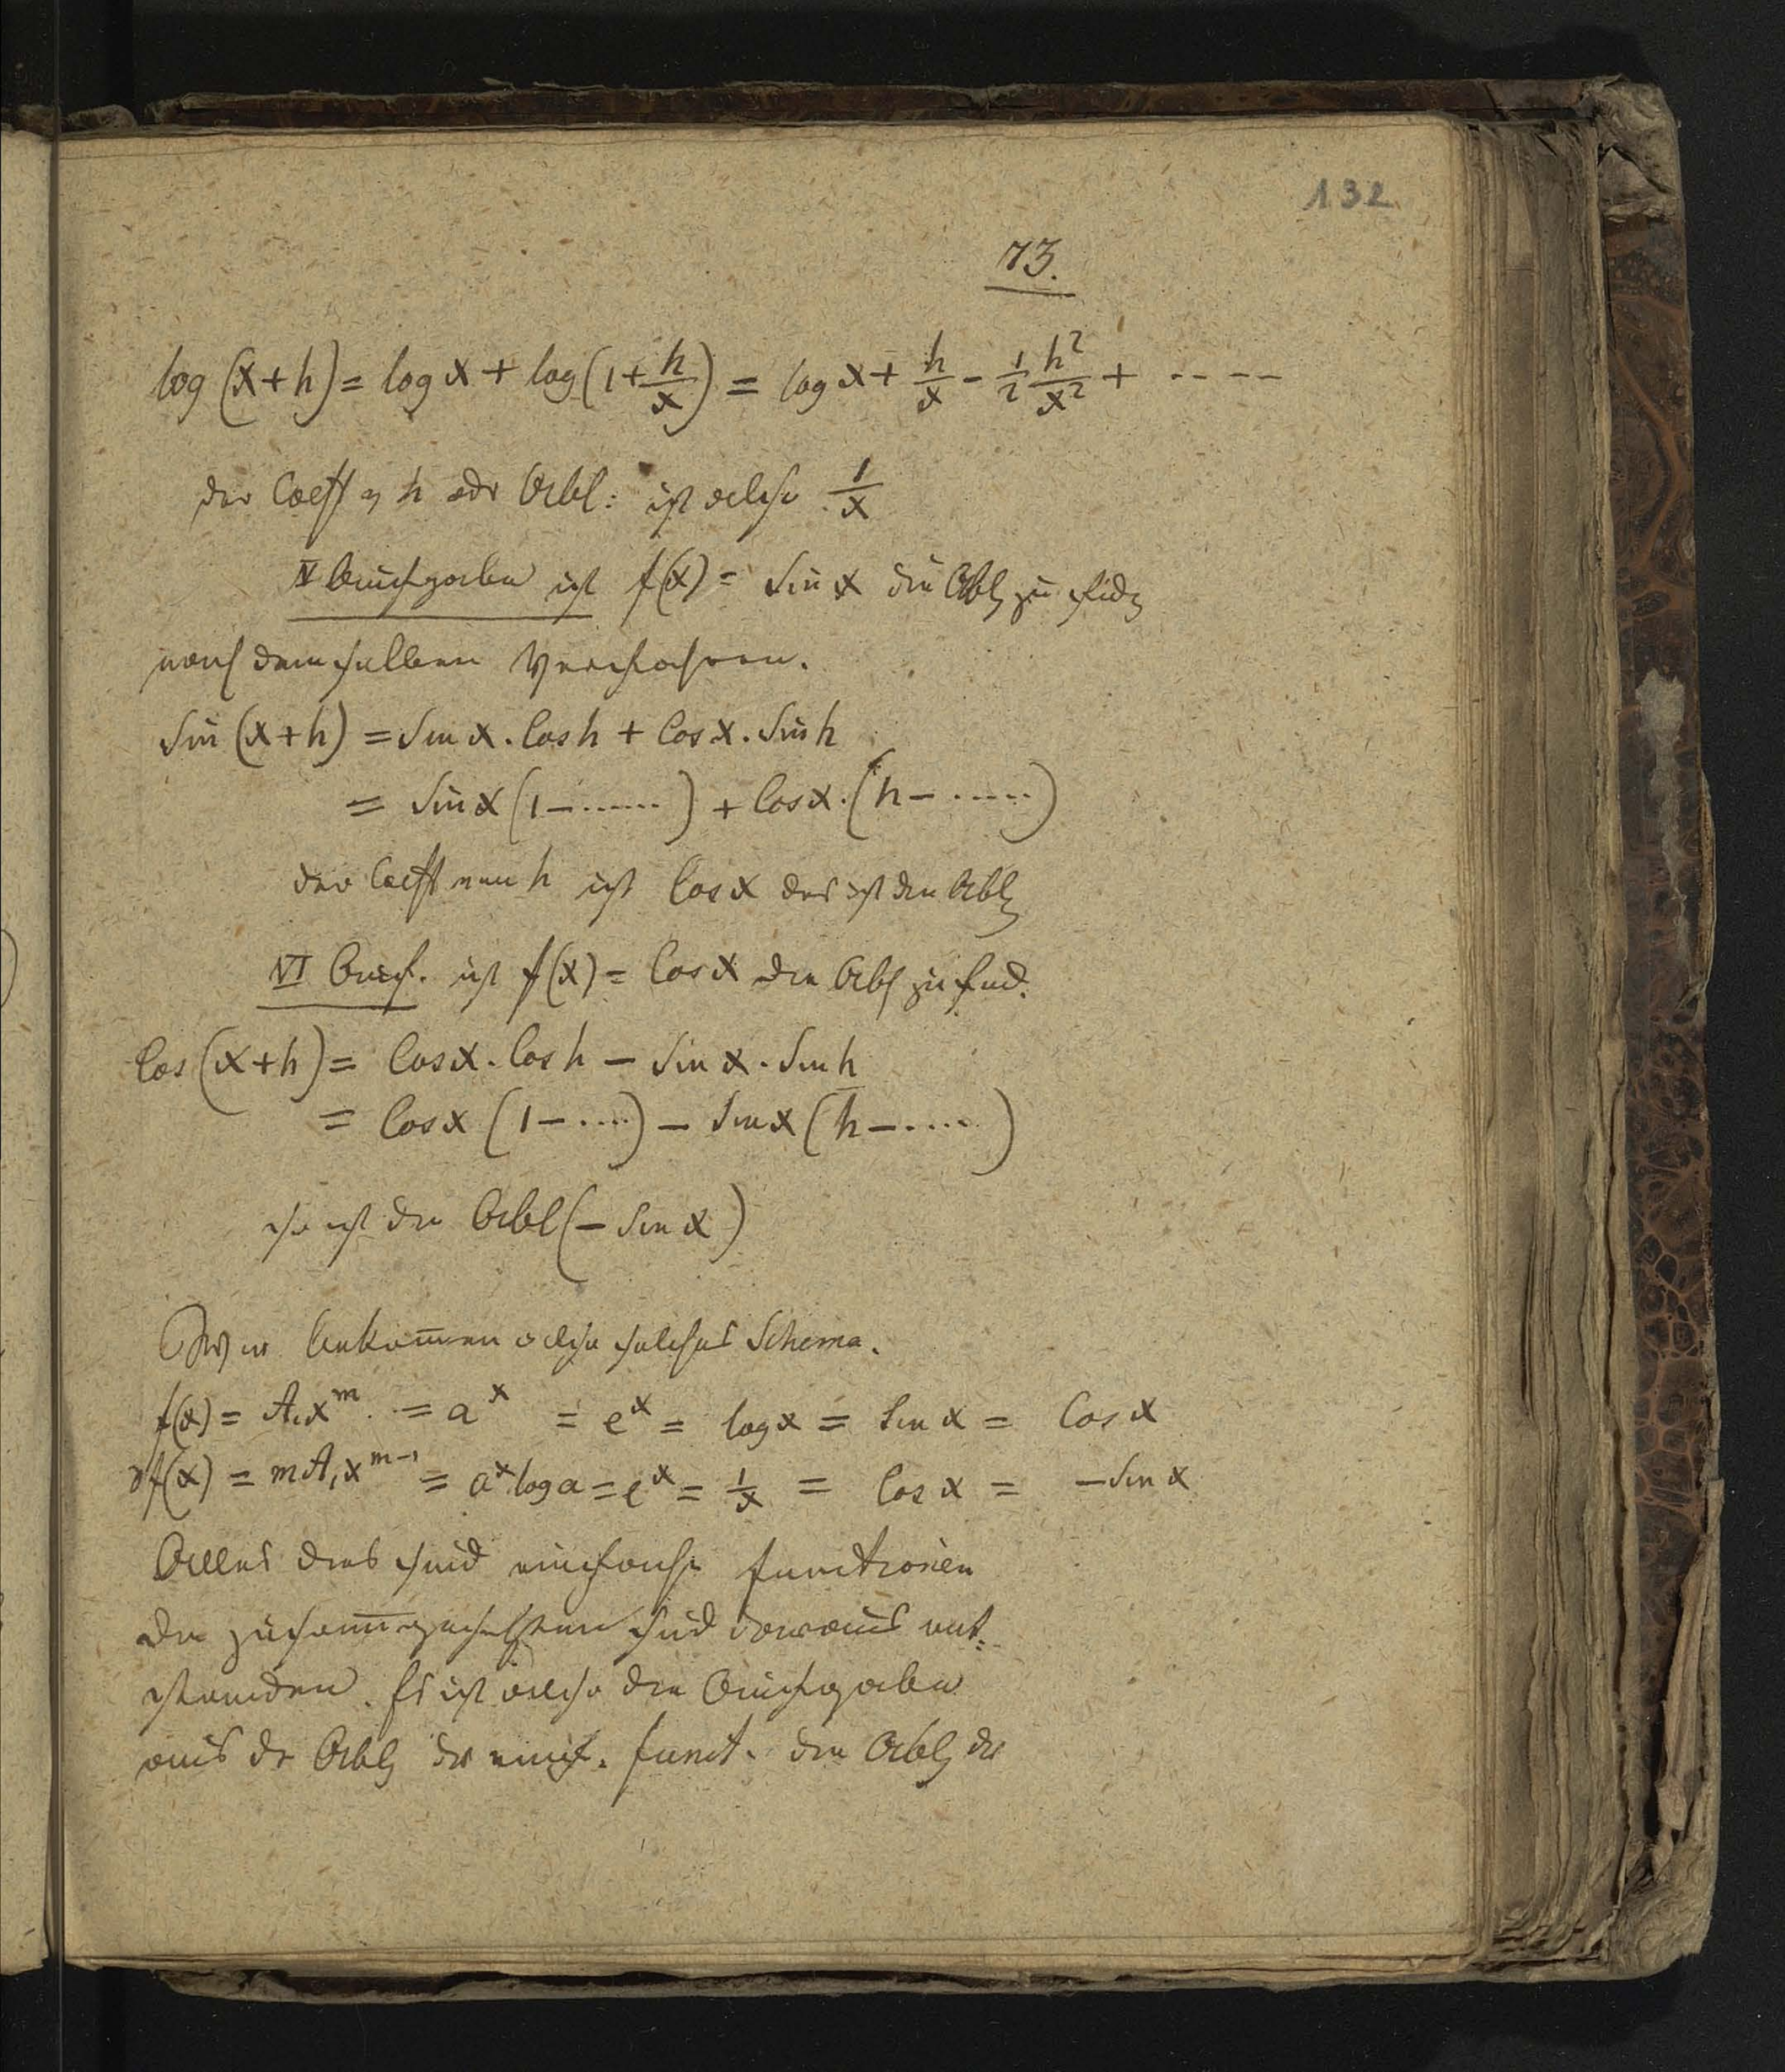 132
73.
log (x+h) = log x + log (1+ h/x) = log x + h/x - 1/2 h²/x² + ----
der Coeff v h odr Abl: ist also 1/x
V Aufgabe ist f(x) = Sin x die Abl zu find
nach demselben Verfahren.
Sin (x+h) = Sin x . Cos h + Cos x . Sin h
= Sin x (1 - ......) + Cos x . (h - .....)
der Coeff von h ist Cos x das ist die Abl
VI Auf. ist f(x) = Cos x die Abl zu find.
Cos (x+h) = Cos x . Cos h - Sin x . Sin h
= Cos x (1 - ....) - Sin x (h - .....)
so ist die Abl (- Sin x)
Wir bekom̅en also solches Schema.
f(x) = A.x^m = a^x = e^x = log x = Sin x = Cos x
∂f(x) = mA.x^(m-1) = a^x log a = e^x = 1/x = Cos x = - Sin x
Alles dies sind einfache functionen
die zusam̅engesetzten sind daraus ent-
standen. Es ist also die Aufgabe
aus dr Abl dr einf. funct. die Abl dr